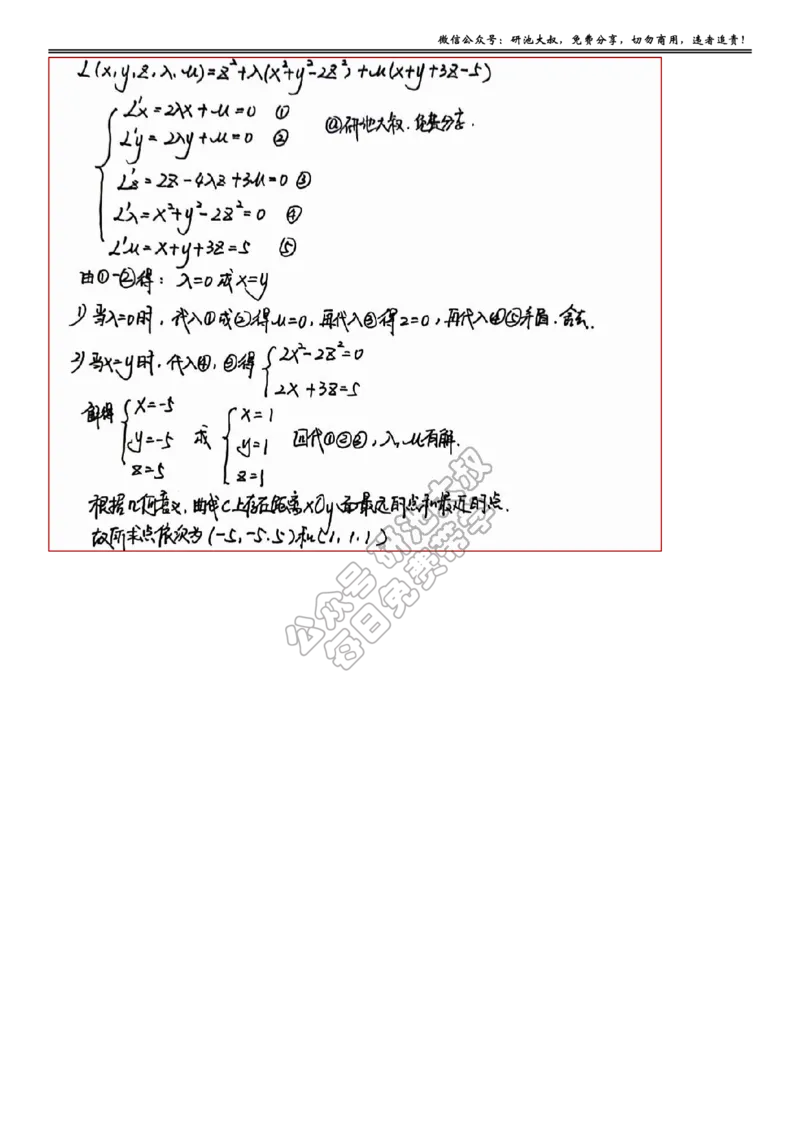 微信公众号：研池大叔，免费分享，切勿商用，违者追责！
L(x,y,z,λ,μ)=z²+λ(x²+y²-2z²)+μ(x+y+3z-5)
L'x=2λx+μ=0 ①
L'y=2λy+μ=0 ②
@研池大叔.免费分享.
L'z=2z-4λz+3μ=0 ③
L'λ=x²+y²-2z²=0 ④
L'μ=x+y+3z=5 ⑤
由①-②得：λ=0或x=y
1)当λ=0时，代入①或②得μ=0，再代入③得z=0，再代入④⑤矛盾.舍去.
2)当x=y时.代入④,⑤得 {2x²-2z²=0
2x+3z=5
解得 {x=-5 y=-5 z=5 或 {x=1 y=1 z=1 回代①②③，λ,μ有解.
根据几何意义,曲线C上存在距离xOy面最远的点和最近的点.
故所求点依次为(-5,-5.5)和(1,1.1)
公众号 研池大叔
每日免费带学